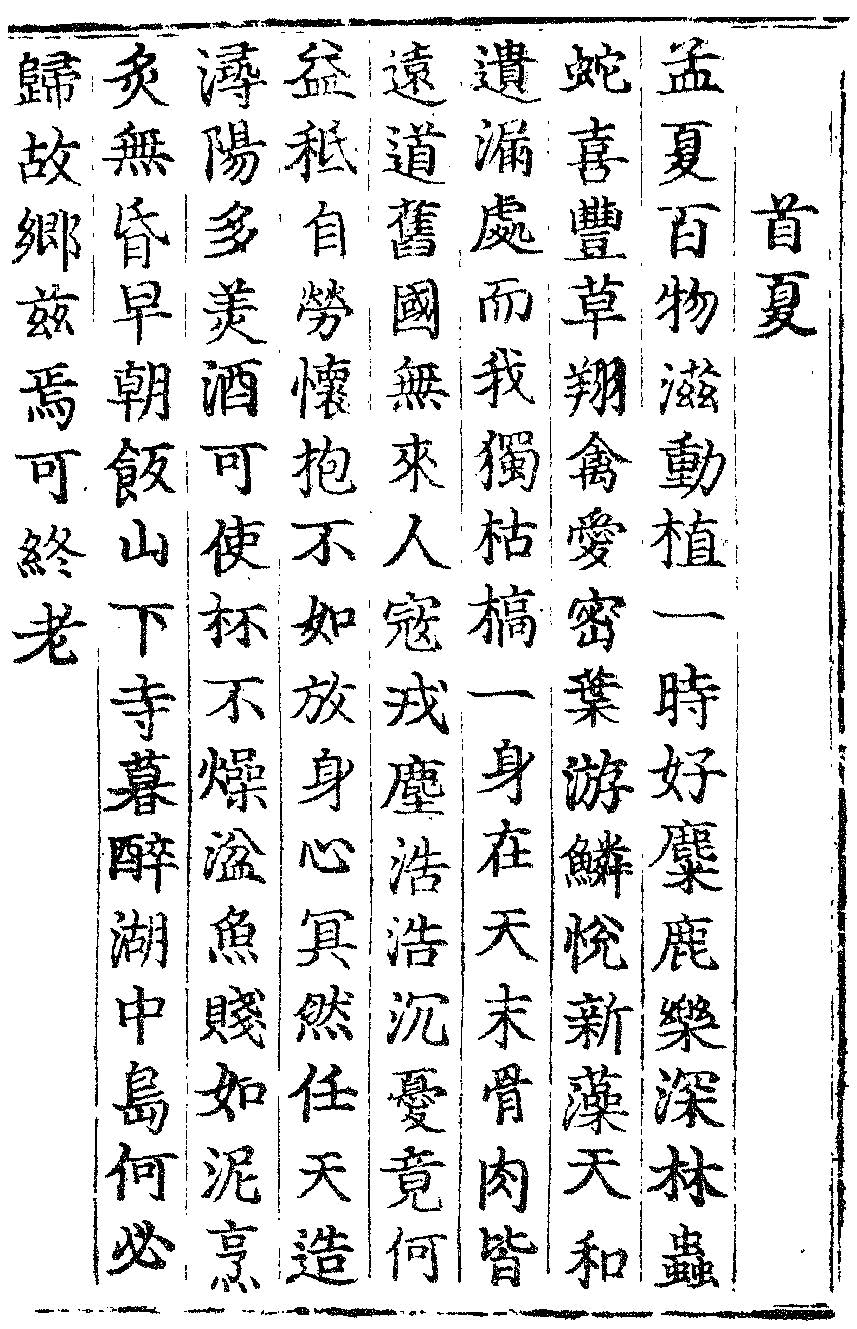 首夏
孟夏百物滋動植一時好麋鹿樂深林蟲
蛇喜豐草翔禽愛密葉游鱗恱新藻天和
遺漏處而我獨枯槁一身在天末骨肉皆
遠道舊國無來人寇戎塵浩浩沉憂竟何
益秪自勞懷抱不如放身心冥然任天造
潯陽多羙酒可使杯不燥湓魚賤如泥烹
炙無昏早朝飯山下寺暮醉湖中島何必
歸故鄉兹焉可終老